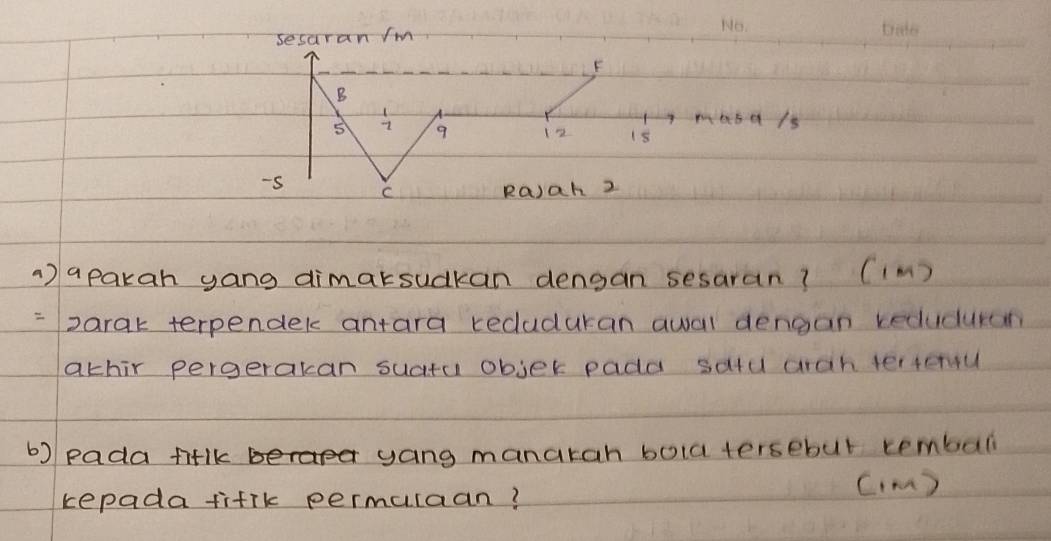 No.
Date
sesaran /m
F
B
5
7
9
12
15
masa /s
-5
C
Rajah 2
a) apakah yang dimaksudkan dengan sesaran? (1m)
= Jarak terpendek antara kedudukan awal dengan kedudukan
akhir pergerakan suatu objek pada satu arah tertentu
b) pada titik berapa yang manakah bola tersebut kembali
kepada titik permulaan? (1m)